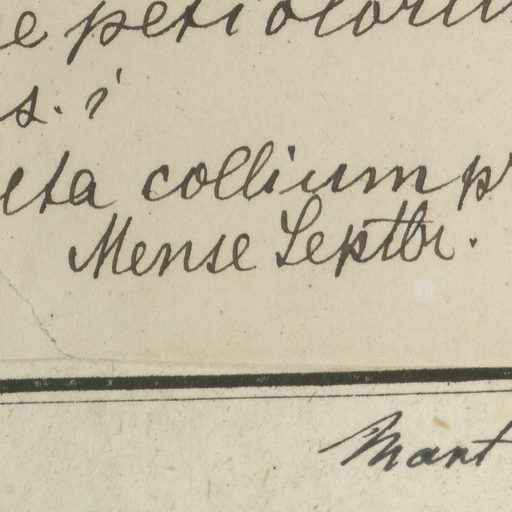 e petiolorum
s. i
eta collium p
Mense Septbr.
Mant